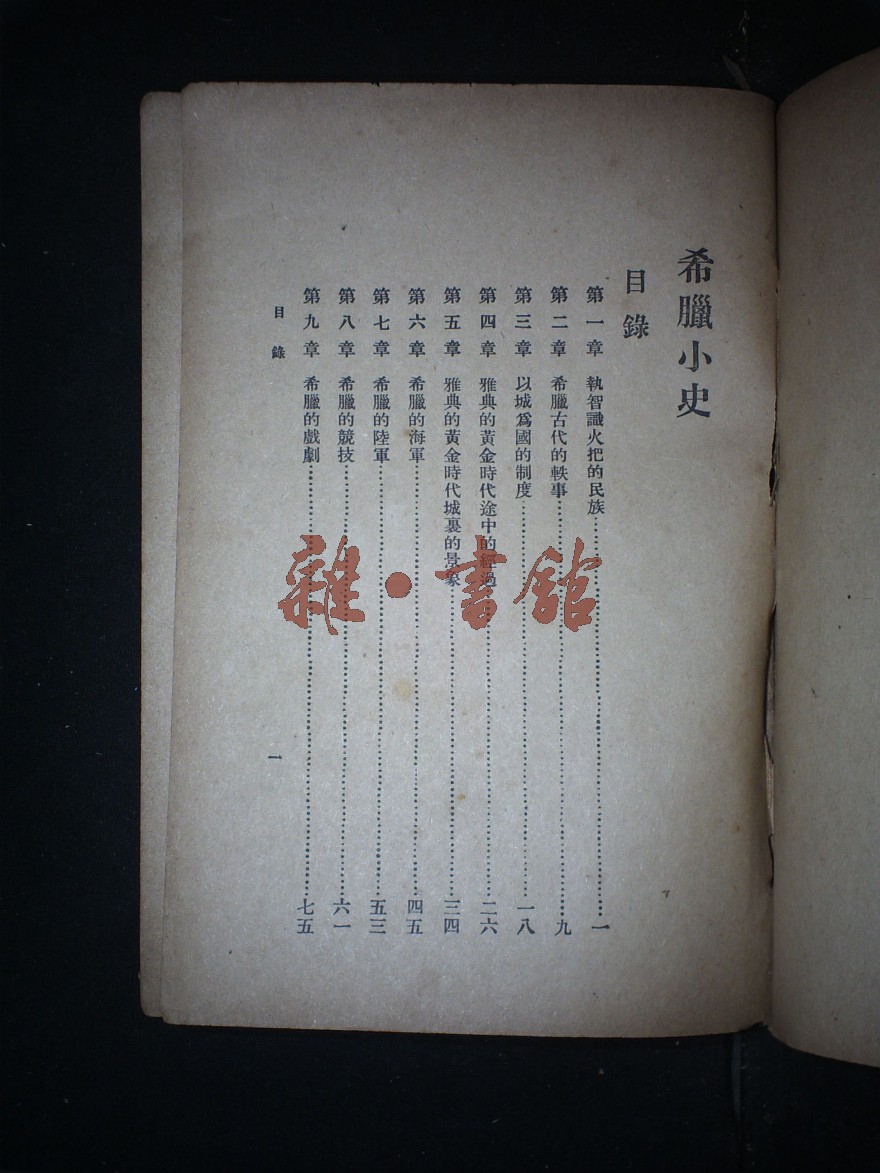 希臘小史
目錄
第一章 執智識火把的民族……一
第二章 希臘古代的軼事……九
第三章 以城爲國的制度……一八
第四章 雅典的黃金時代途中的經過……二六
第五章 雅典的黃金時代城裏的景象……三四
第六章 希臘的海軍……四五
第七章 希臘的陸軍……五三
第八章 希臘的競技……六一
第九章 希臘的戲劇……七五
目錄
一
雜·書館